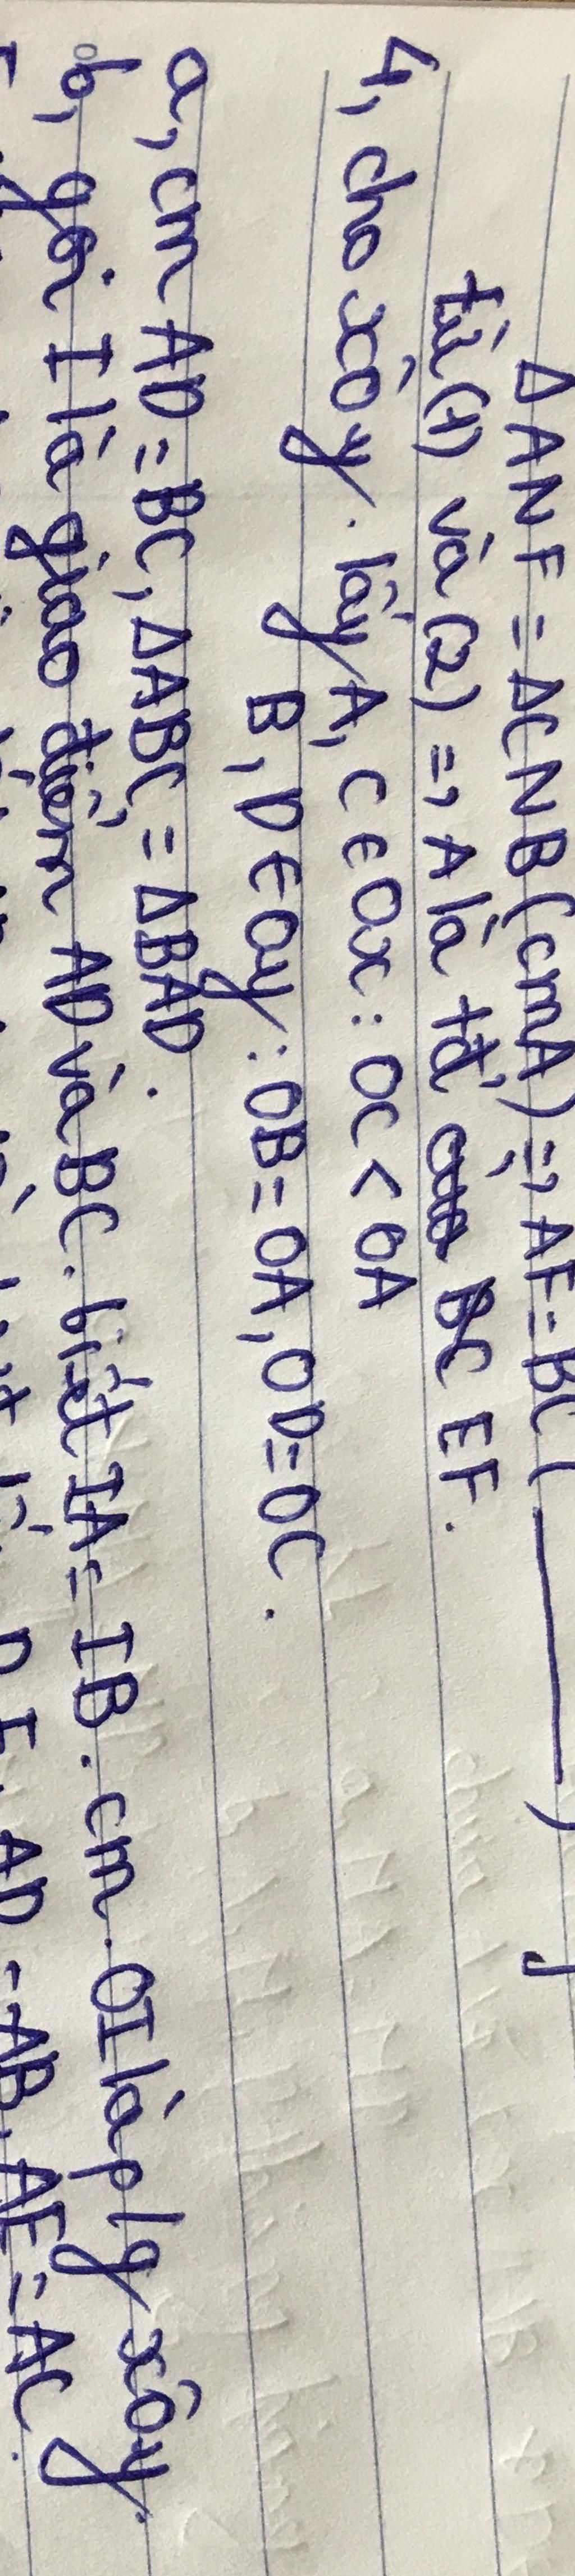 ΔANF = ΔCNB (cmA) => AF = BC (
từ (1) và (2) => A là tđ' BC EF.
4, cho xôy. lấy A, C ∈ Ox : OC < OA
B, D ∈ Oy : OB = OA, OD = OC.
a, cm AD = BC, ΔABC = ΔBAD.
b, gọi I là giao điểm AD và BC. biết IA = IB. cm. OI là p/g xôy.
D E AD = AB, AE = AC.